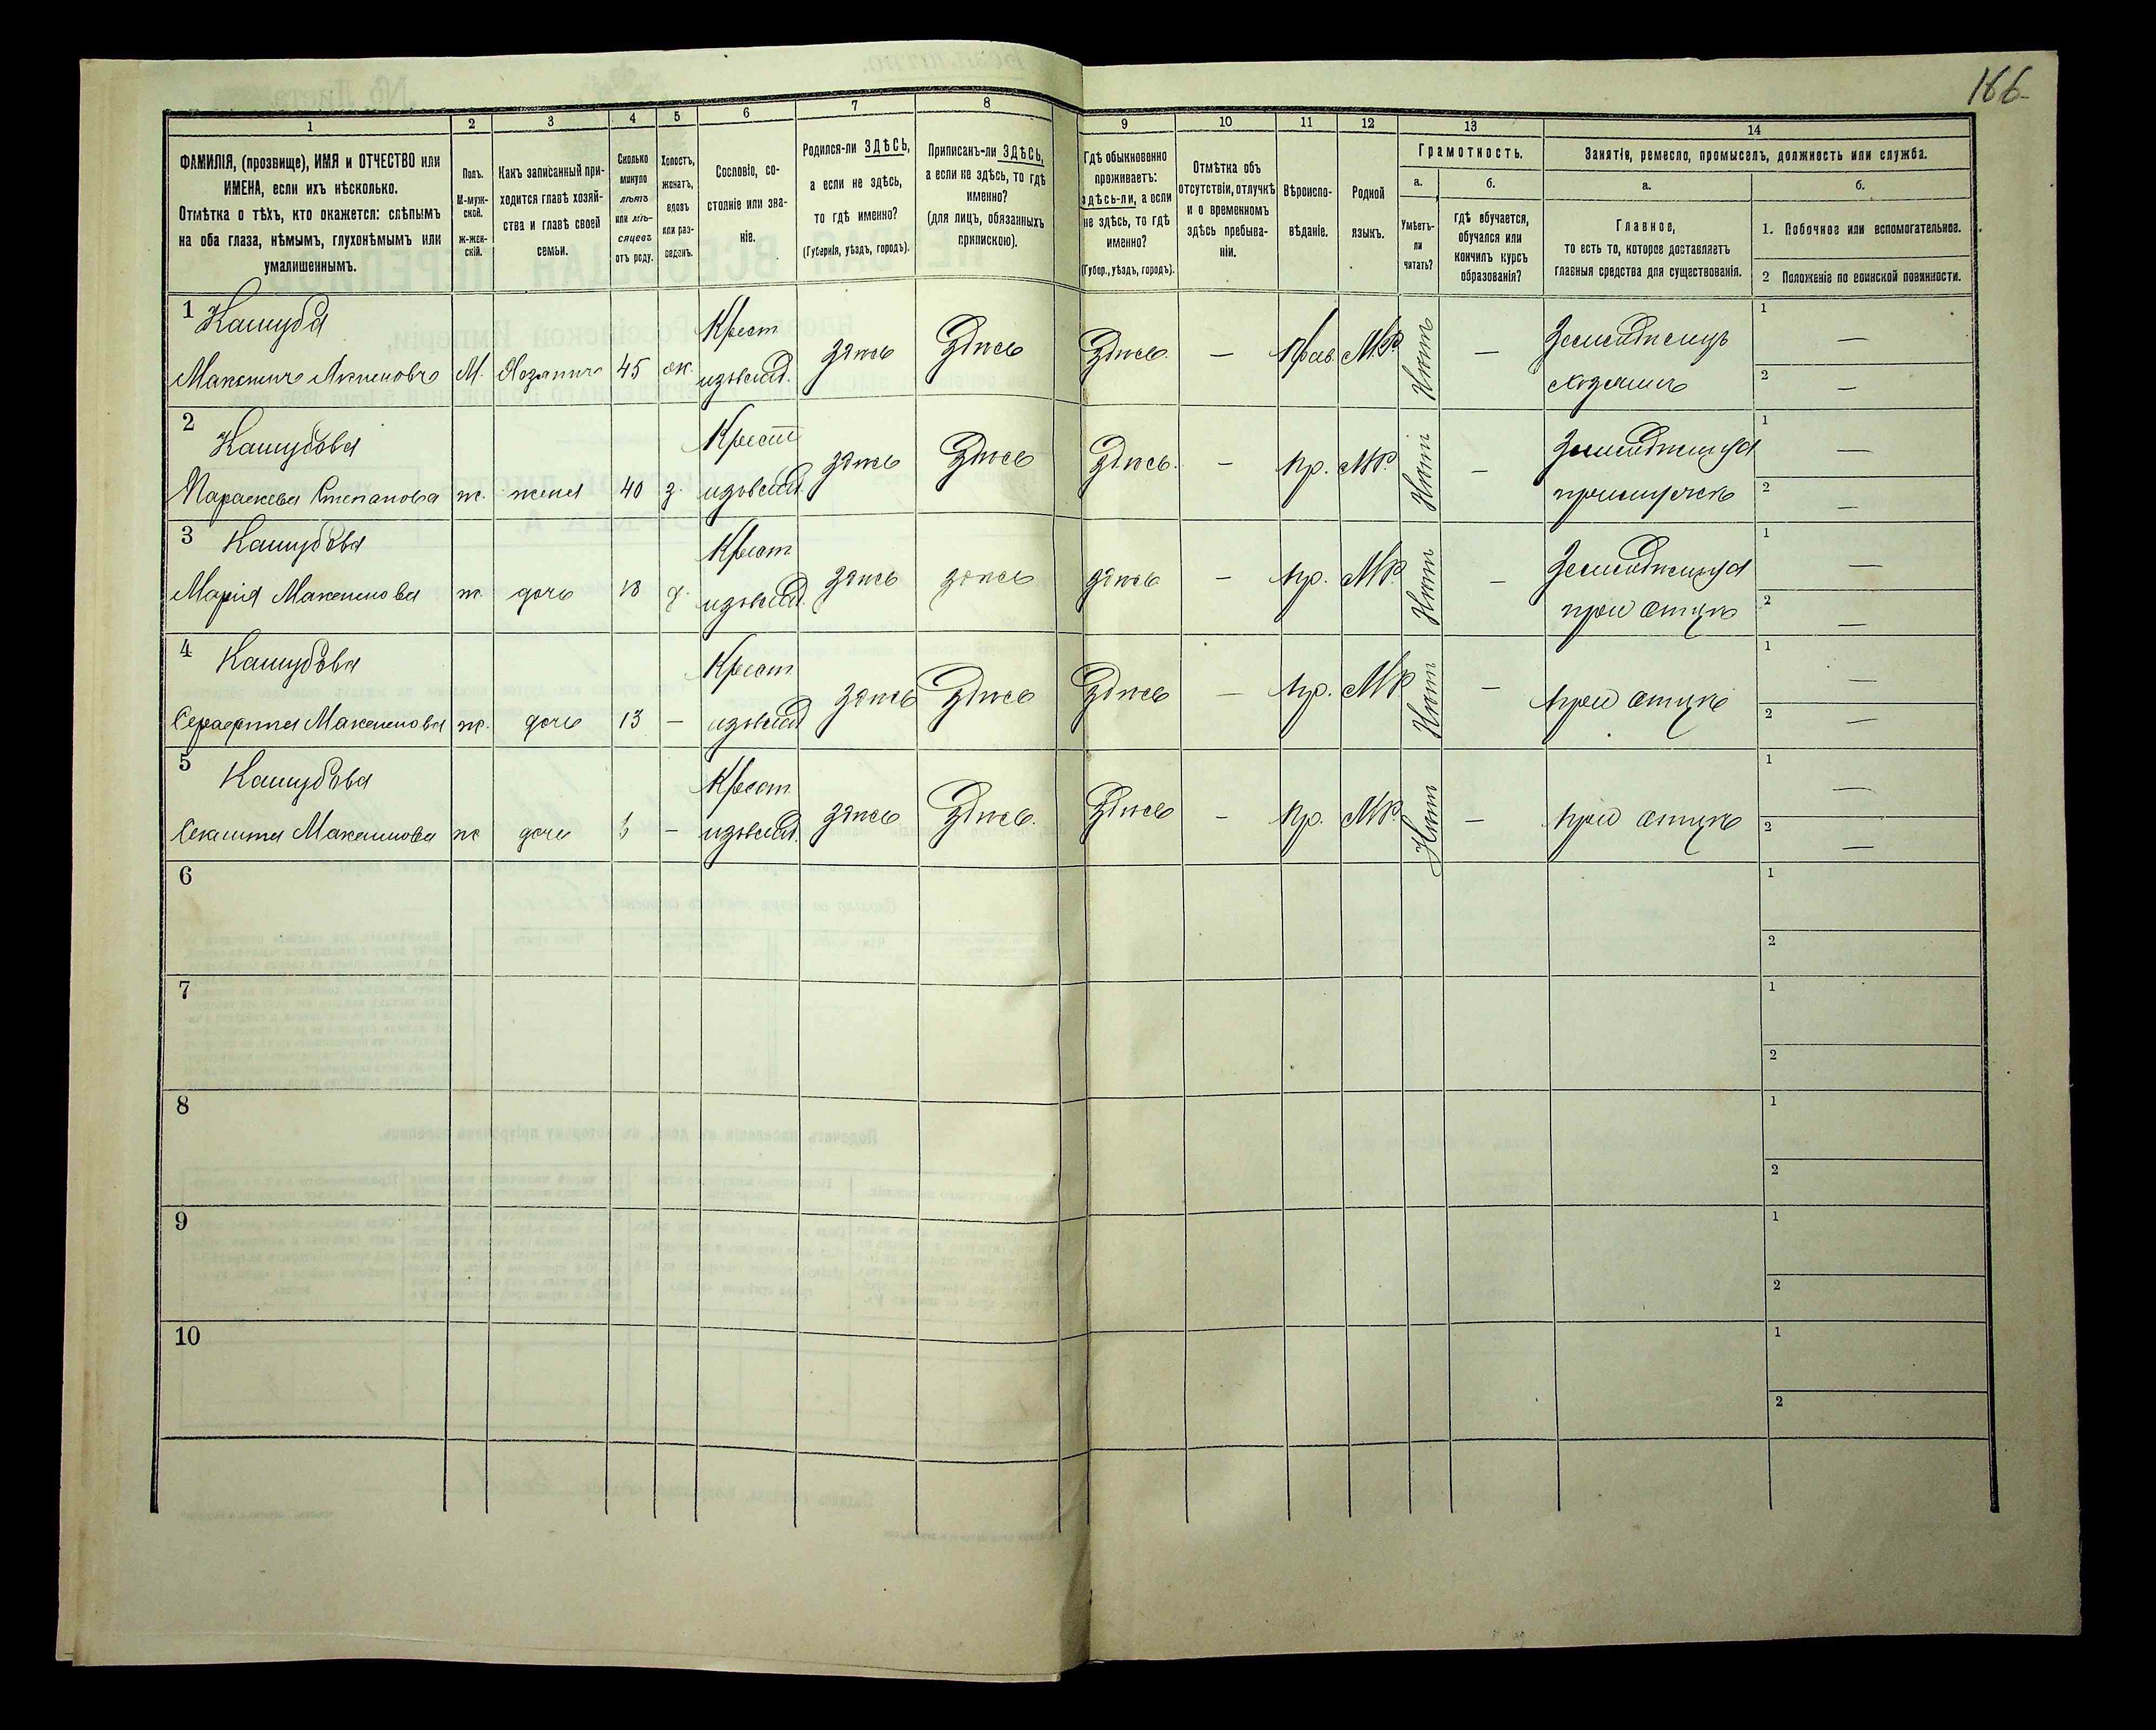 166
1 2 3 4 5 6 7 8 9 10 11 12 13 14
ФАМИЛІЯ, (прозвище), ИМЯ и ОТЧЕСТВО или
ИМЕНА, если ихъ нѣсколько.
Отмѣтка о тѣхъ, кто окажется: слѣпымъ
на оба глаза, нѣмымъ, глухонѣмымъ или
умалишеннымъ.
Полъ.
М-муж-
ской.
ж-жен-
скій.
Какъ записанный при-
ходится главѣ хозяй-
ства и главѣ своей
семьи.
Сколько
минуло
лѣтъ
или мѣ-
сяцевъ
отъ роду.
Холостъ,
женатъ,
вдовъ
или раз-
веденъ.
Сословіе, со-
стояніе или зва-
ніе.
Родился-ли ЗДѢСЬ,
а если не здѣсь,
то гдѣ именно?
(Губернія, уѣздъ, городъ).
Приписанъ-ли ЗДѢСЬ,
а если не здѣсь, то гдѣ
именно?
(для лицъ, обязанныхъ
припискою).
Гдѣ обыкновенно
проживаетъ:
здѣсь-ли, а если
не здѣсь, то гдѣ
именно?
(Губер., уѣздъ, городъ).
Отмѣтка объ
отсутствіи, отлучкѣ
и о временномъ
здѣсь пребыва-
ніи.
Вѣроиспо-
вѣданіе.
Родной
языкъ.
Грамотность.
а.
Умѣетъ-
ли
читать?
б.
гдѣ обучается,
обучался или
кончилъ курсъ
образованія?
Занятіе, ремесло, промыселъ, должность или служба.
а.
Главное,
то есть то, которое доставляетъ
главныя средства для существованія.
б.
1. Побочное или вспомогательное.
2 Положеніе по воинской повинности.
1 Кашуба
Максимъ Акимовъ М. Хозяинъ 45 ж. Крест. изъ влад. здѣсь Здѣсь Здѣсь — Прав. М.Р. Нѣтъ — Земледѣлецъ хозяинъ 1 — 2 —
2 Кашубова
Параскева Степанова ж. жена 40 з. Крест. изъ влад. здѣсь Здѣсь Здѣсь. — Пр. М.Р. Нѣтъ — Земледѣлица при мужѣ 1 — 2 —
3 Кашубова
Марія Максимова ж. дочь 18 д. Крест. изъ влад. здѣсь здѣсь здѣсь — Пр. М.Р. Нѣтъ — Земледѣлица при отцѣ 1 — 2 —
4 Кашубова
Серафима Максимова ж. дочь 13 — Крест. изъ влад. здѣсь Здѣсь Здѣсь — Пр. М.Р. Нѣтъ — при отцѣ 1 — 2 —
5 Кашубова
Максимова ж. дочь — Крест. изъ влад. здѣсь Здѣсь. Здѣсь — Пр. М.Р. Нѣтъ — при отцѣ 1 — 2 —
6 1
2
7 1
2
8 1
2
9 1
2
10 1
2